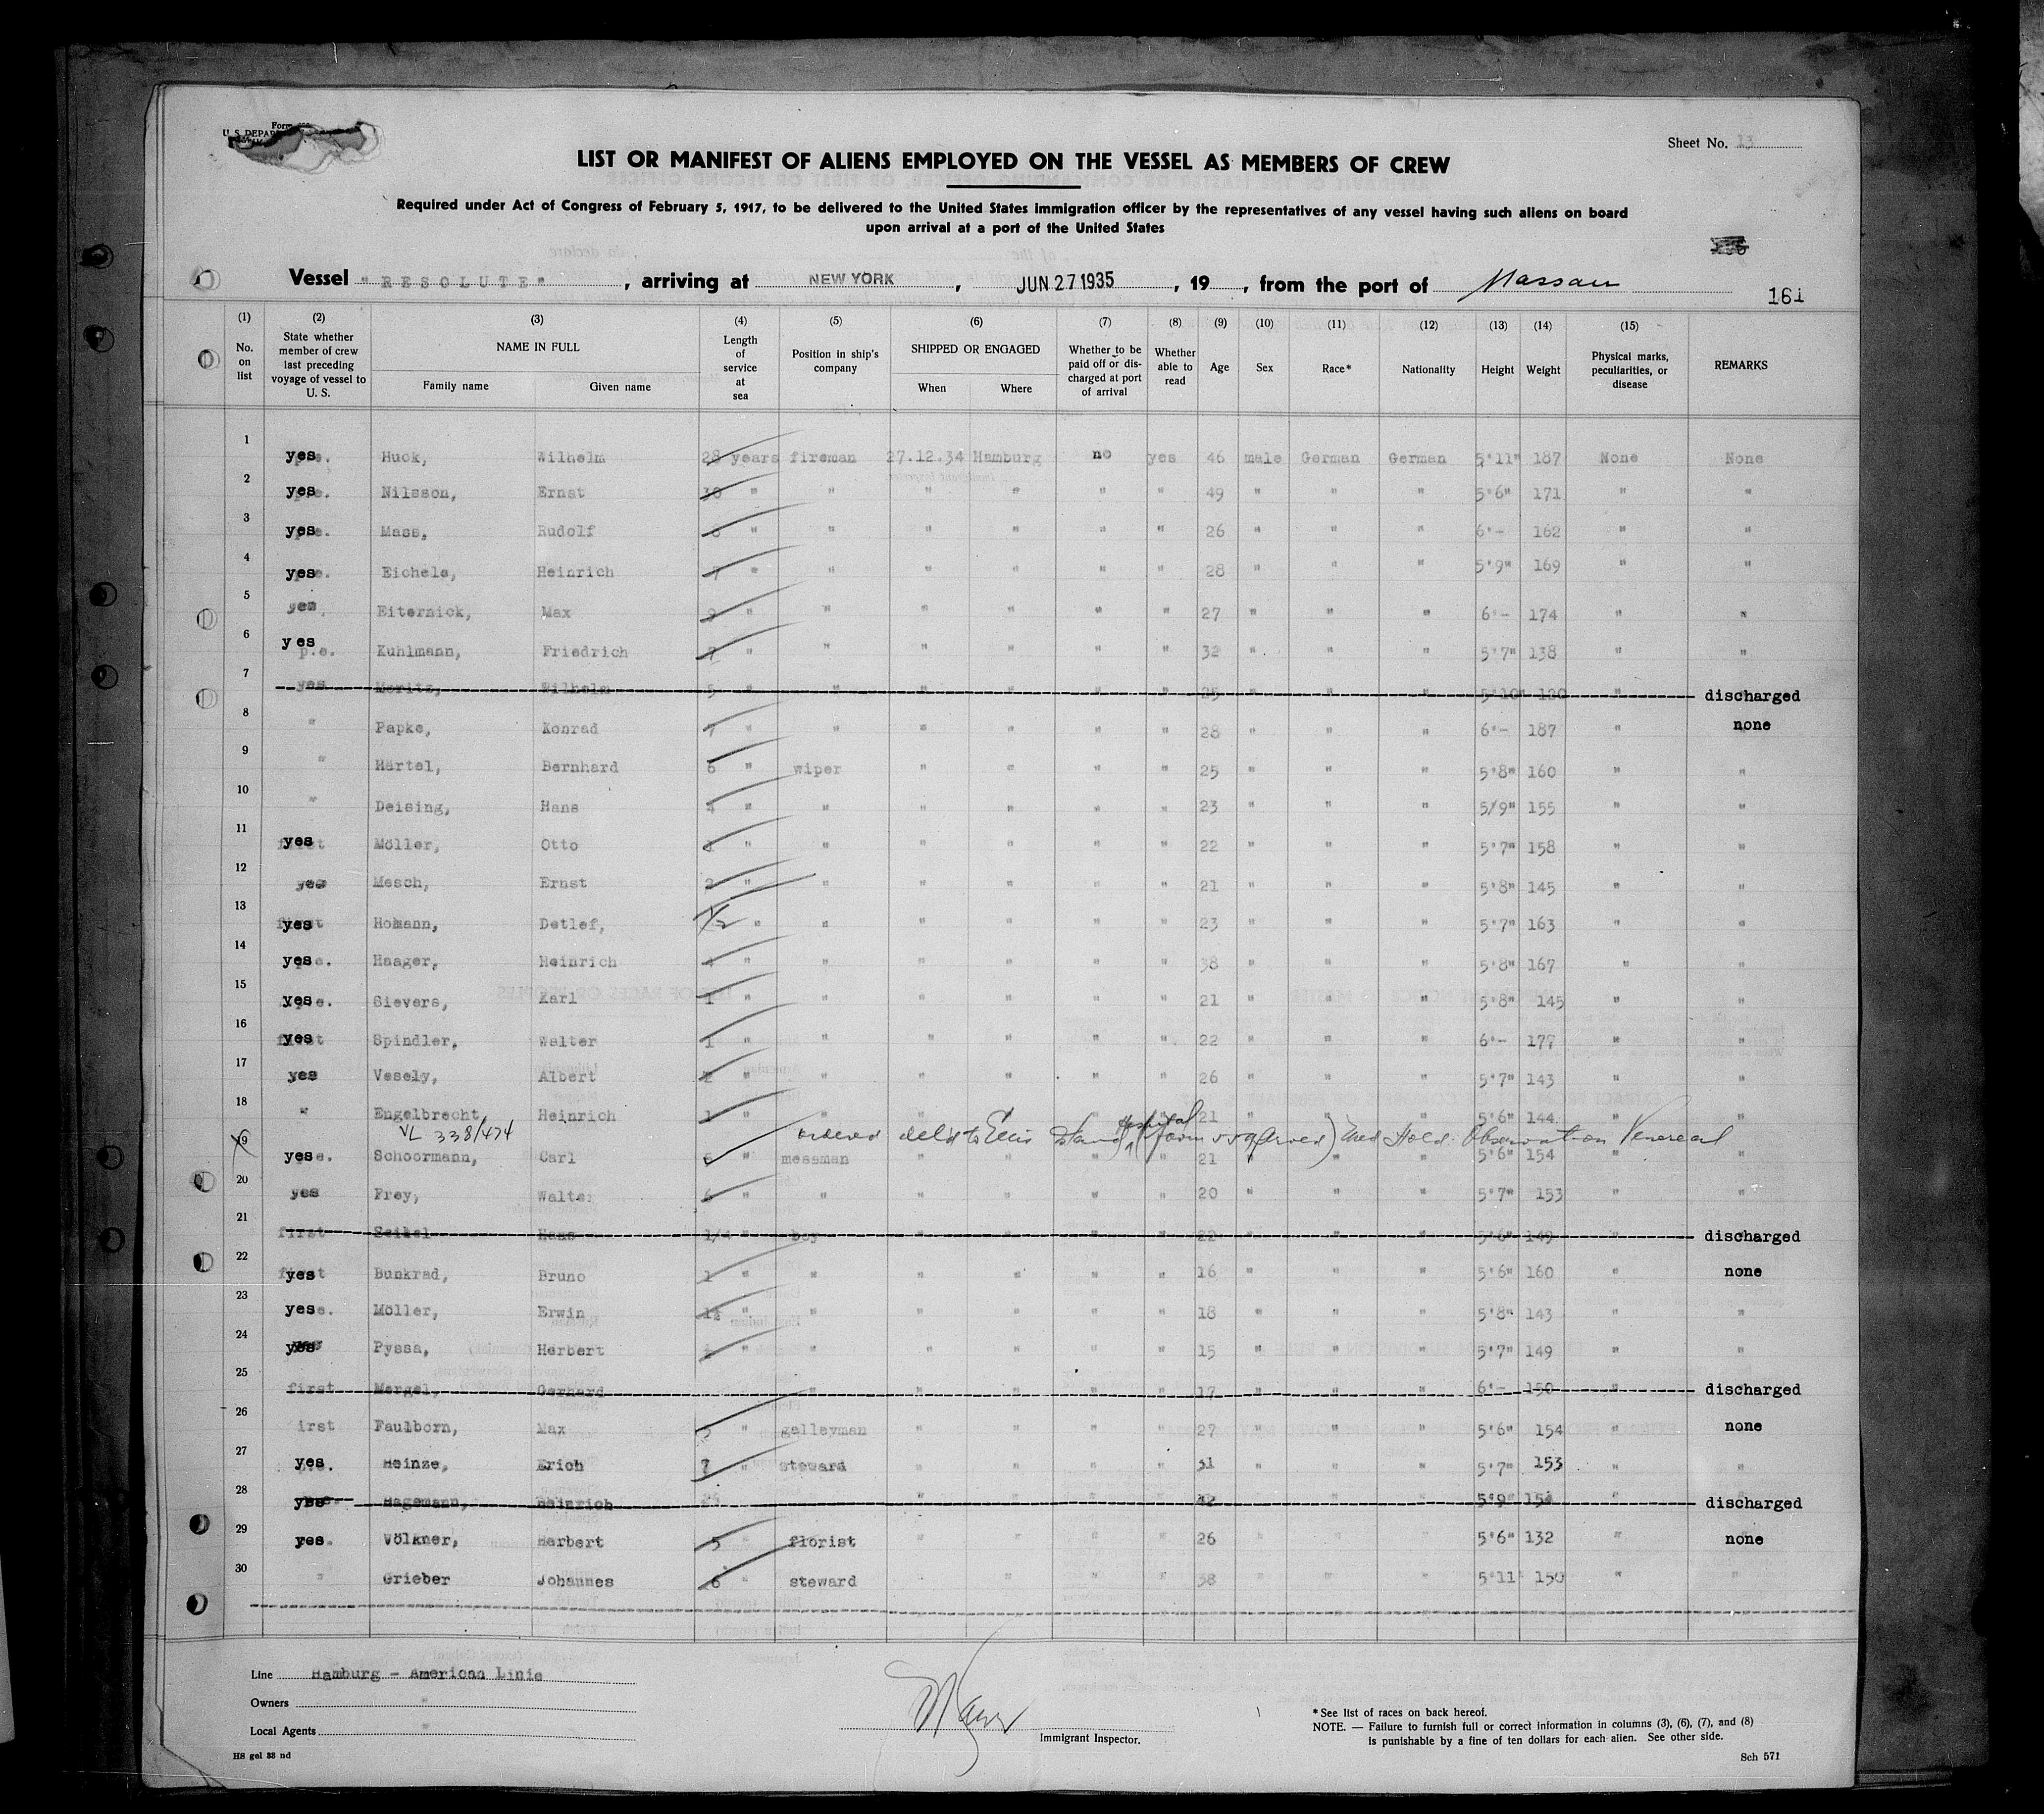 Form
U. S. DEPAR
Sheet No. 13
LIST OR MANIFEST OF ALIENS EMPLOYED ON THE VESSEL AS MEMBERS OF CREW
Required under Act of Congress of February 5, 1917, to be delivered to the United States Immigration officer by the representatives of any vessel having such aliens on board
upon arrival at a port of the United States
Vessel "RESOLUTE", arriving at NEW YORK, JUN 27 1935, 19, from the port of Nassau
161
(1) (2) (3) (4) (5) (6) (7) (8) (9) (10) (11) (12) (13) (14) (15)
No. on list State whether member of crew last preceding voyage of vessel to U. S. NAME IN FULL Family name Given name Length of service at sea Position in ship's company SHIPPED OR ENGAGED When Where Whether to be paid off or discharged at port of arrival Whether able to read Age Sex Race* Nationality Height Weight Physical marks, peculiarities, or disease REMARKS
1 yes Huck, Wilhelm 28 years fireman 27.12.34 Hamburg no yes 46 male German German 5'11" 187 None None
2 yes Nilsson, Ernst 30 " " " " " " 49 " " " 5'6" 171 " "
3 yes Mass, Rudolf " " " " " " 26 " " " 6'- 162 " "
4 yes Eichele, Heinrich 7 " " " " " " 28 " " " 5'9" 169 " "
5 yes Eiternick, Max 9 " " " " " " 27 " " " 6'- 174 " "
6 yes p.e. Kuhlmann, Friedrich 7 " " " " " " 32 " " " 5'7" 138 " "
7 yes Moritz, Wilhelm 5 " " " " " " 25 " " " 5'10" 120 " discharged
8 " Papke, Konrad 7 " " " " " " 28 " " " 6'- 187 " none
9 " Härtel, Bernhard 6 " wiper " " " " 25 " " " 5'8" 160 " "
10 " Deising, Hans 4 " " " " " " 23 " " " 5/9" 155 " "
11 yes Möller, Otto " " " " " " 22 " " " 5'7" 158 " "
12 yes Mesch, Ernst 2 " " " " " " 21 " " " 5'8" 145 " "
13 yes Homann, Detlef, 1/2 " " " " " " 23 " " " 5'7" 163 " "
14 yes Haager, Heinrich " " " " " " 38 " " " 5'8" 167 " "
15 yes Sievers, Karl 1 " " " " " " 21 " " " 5'8" 145 " "
16 yes Spindler, Walter 1 " " " " " " 22 " " " 6'- 177 " "
17 yes Vesely, Albert " " " " " " 26 " " " 5'7" 143 " "
18 " Engelbrecht Heinrich 1 " " " " " " 21 " " " 5'6" 144 " "
VL 338/474 ordered held to Ellis Island Hospital (Form served) Med Hold Observation Venereal
19 yes Schoormann, Carl " messman " " " " 21 " " " 5'6" 154 " "
20 yes Frey, Walter 6 " " " " " " 20 " " " 5'7" 153 " "
21 first Seibel Hans 1/4 " boy " " " " 22 " " " 5'6" 149 " discharged
22 yes Bunkrad, Bruno 1 " " " " " " 16 " " " 5'6" 160 " none
23 yes Möller, Erwin 1½ " " " " " " 18 " " " 5'8" 143 " "
24 yes Pyssa, Herbert " " " " " " 15 " " " 5'7" 149 " "
25 first Mergel, Gerhard " " " " " 17 " " " 6'- 150 " discharged
26 irst Faulborn, Max 5 " galleyman " " " " 27 " " " 5'6" 154 " none
27 yes. Heinze, Erich 7 " steward " " " " 31 " " " 5'7" 153 " "
28 yes Hagemann, Heinrich " " " " " 42 " " " 5'9" 154 " discharged
29 yes. Völkner, Herbert 5 " florist " " " " 26 " " " 5'6" 132 " none
30 " Grieber Johannes 16 " steward " " " 38 " " " 5'11" 150 " "
Line Hamburg - American Linie
Owners "
Local Agents "
Immigrant Inspector.
* See list of races on back hereof.
NOTE. — Failure to furnish full or correct information in columns (3), (6), (7), and (8)
is punishable by a fine of ten dollars for each alien. See other side.
H8 gel 33 nd
Sch 571